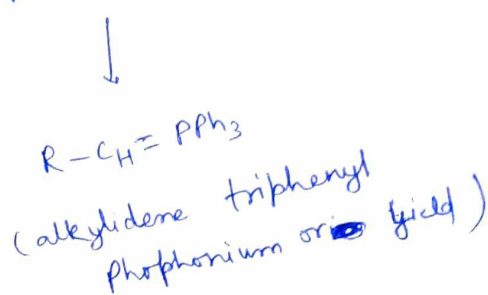 R-CH=PPh3
(alkylidene triphenyl
phophonium or yield)